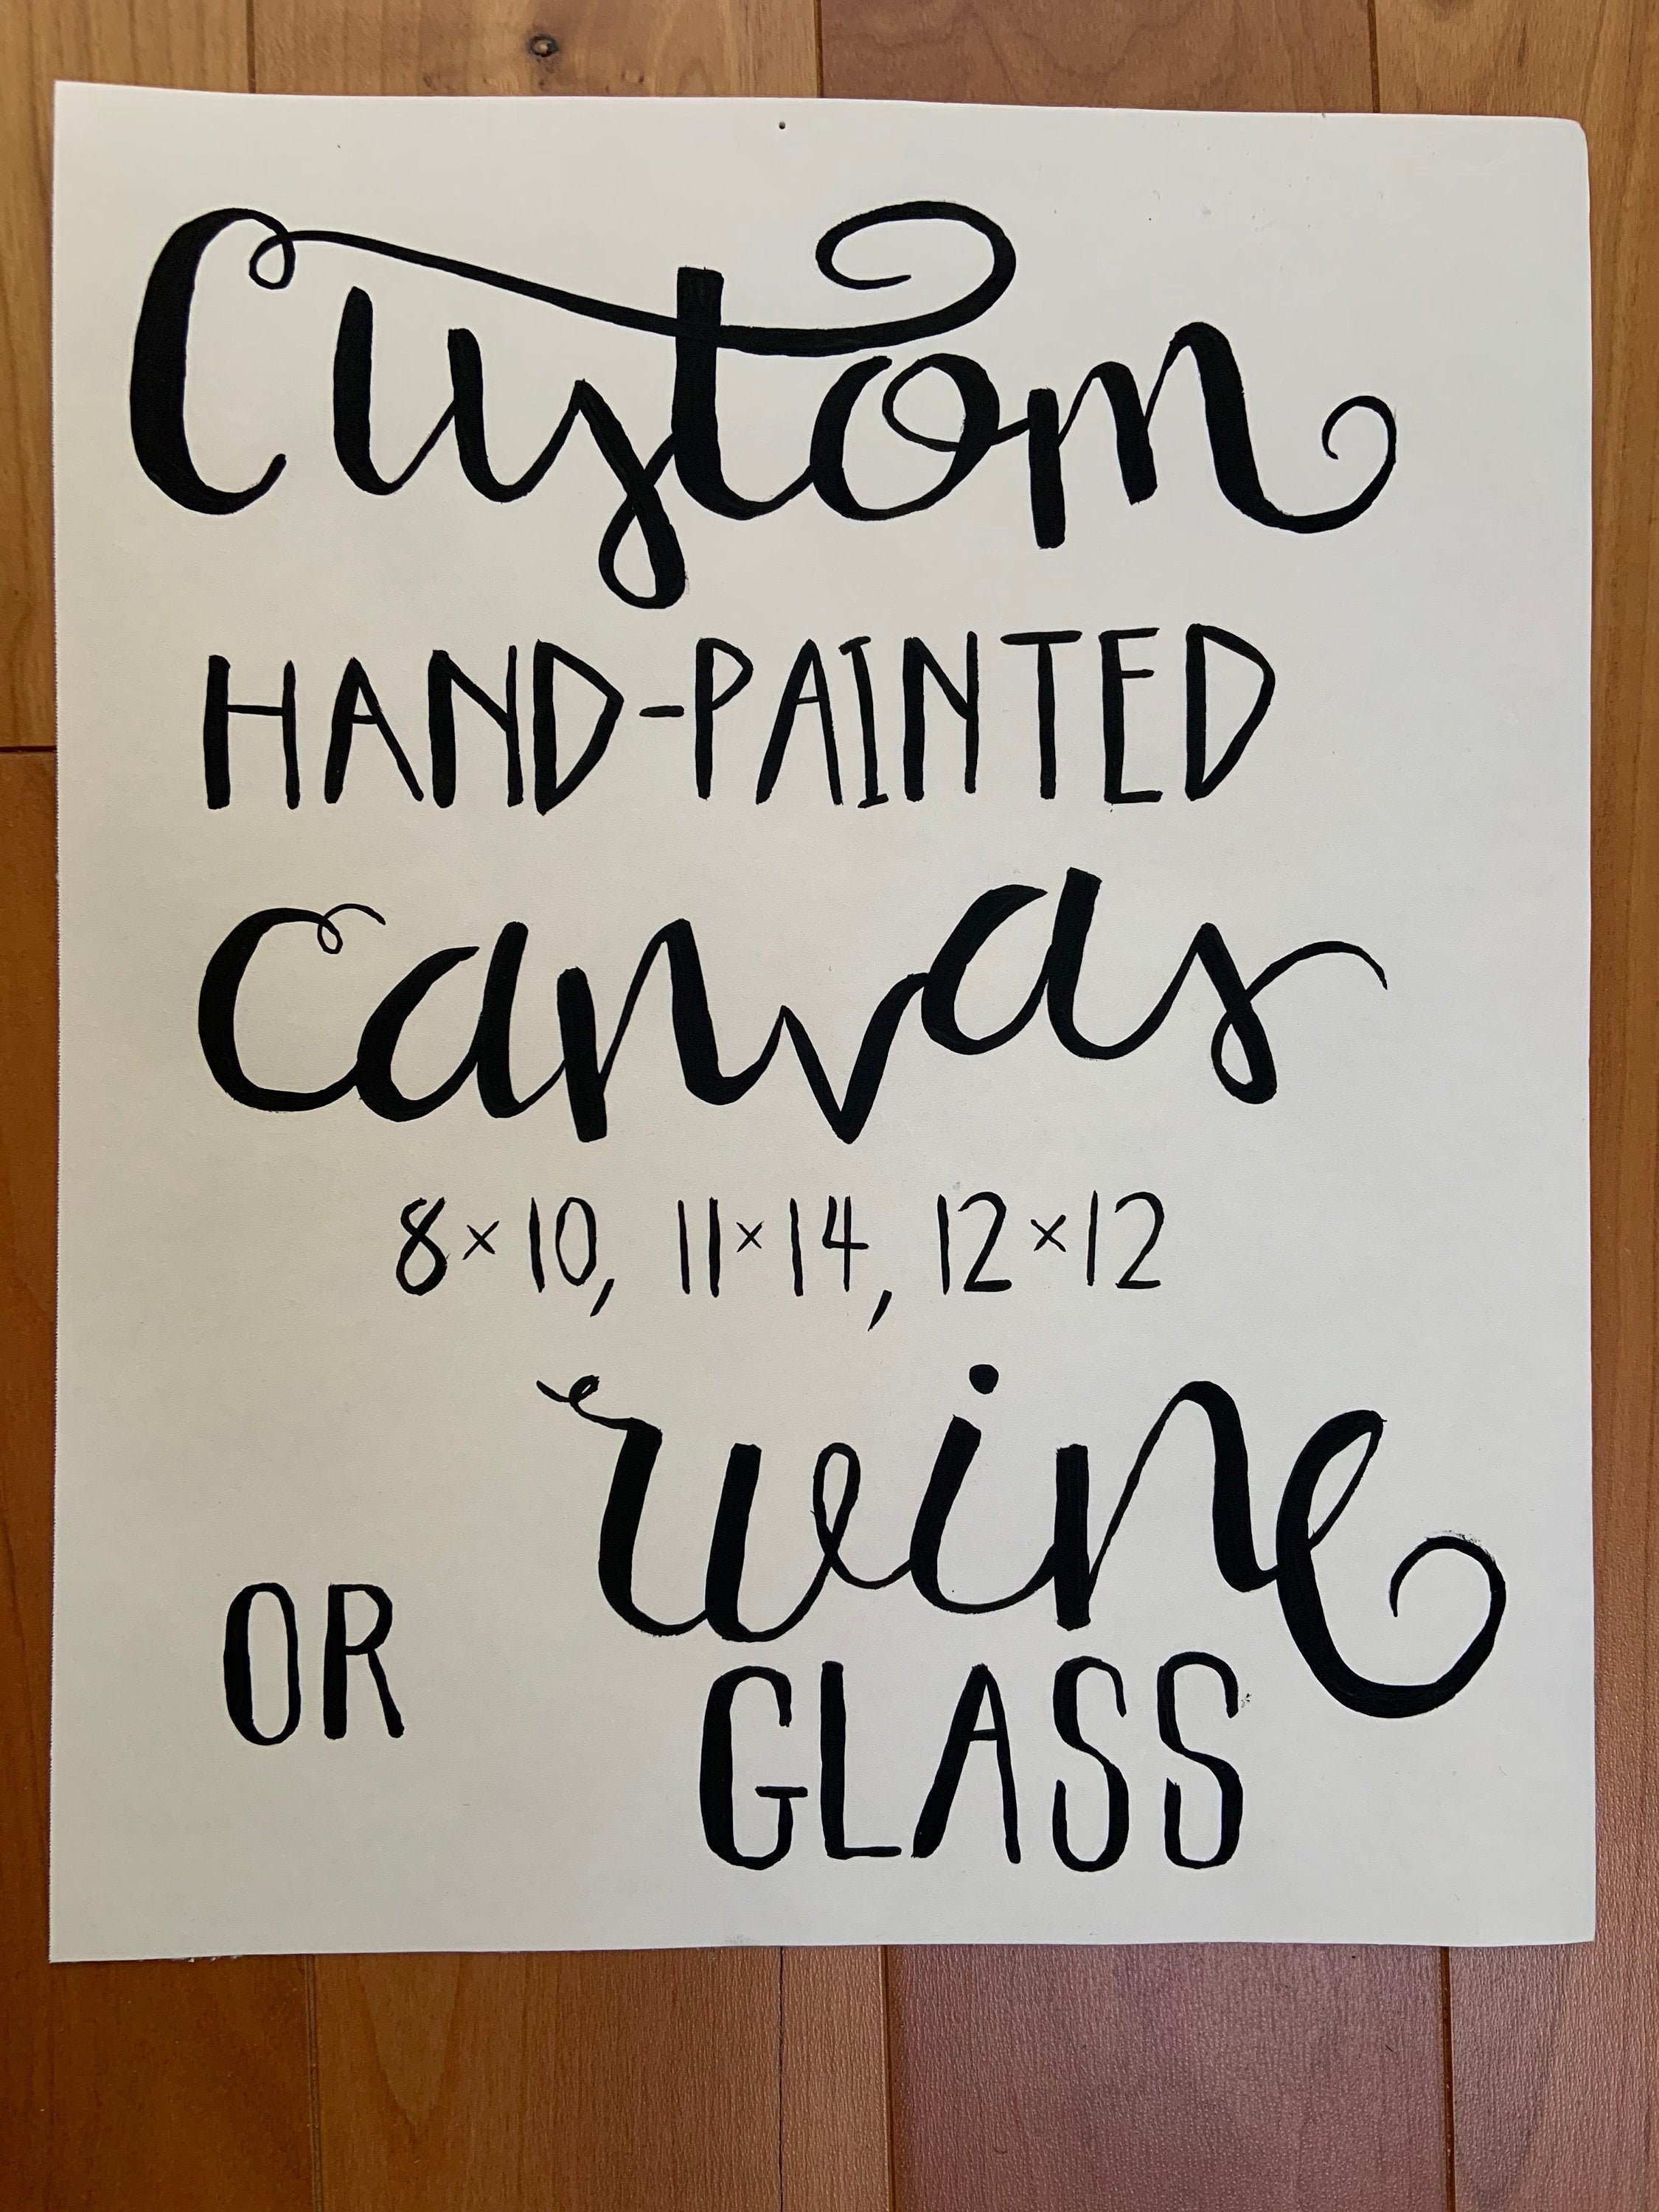 Custom
HAND-PAINTED
Canvas
8×10, 11×14, 12×12
OR wine
GLASS